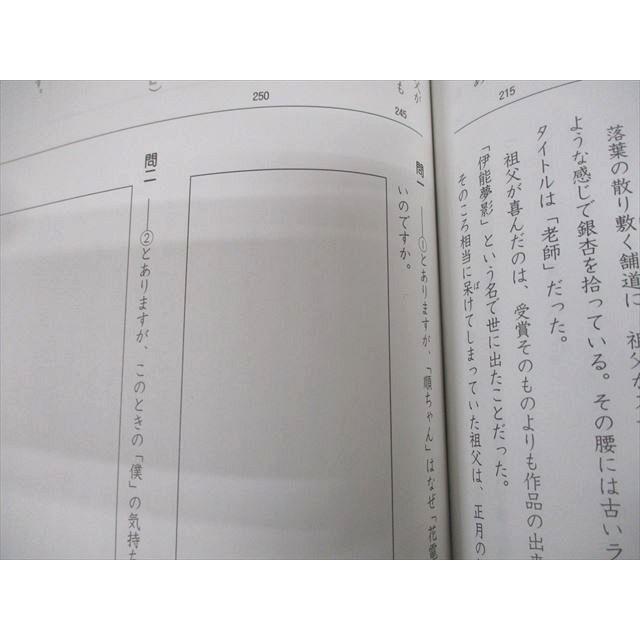 215
落葉の散り敷く舗道に、祖父が
ような感じで銀杏を拾っている。その腰には古いラ
タイトルは「老師」だった。
祖父が喜んだのは、受賞そのものよりも作品の出来
「伊能夢影」という名で世に出たことだった。
そのころ相当に呆けてしまっていた祖父は、正月の
ぼ
245
250
問一 ――①とありますが、「順ちゃん」はなぜ「花電
いのですか。
問二 ――②とありますが、このときの「僕」の気持ち